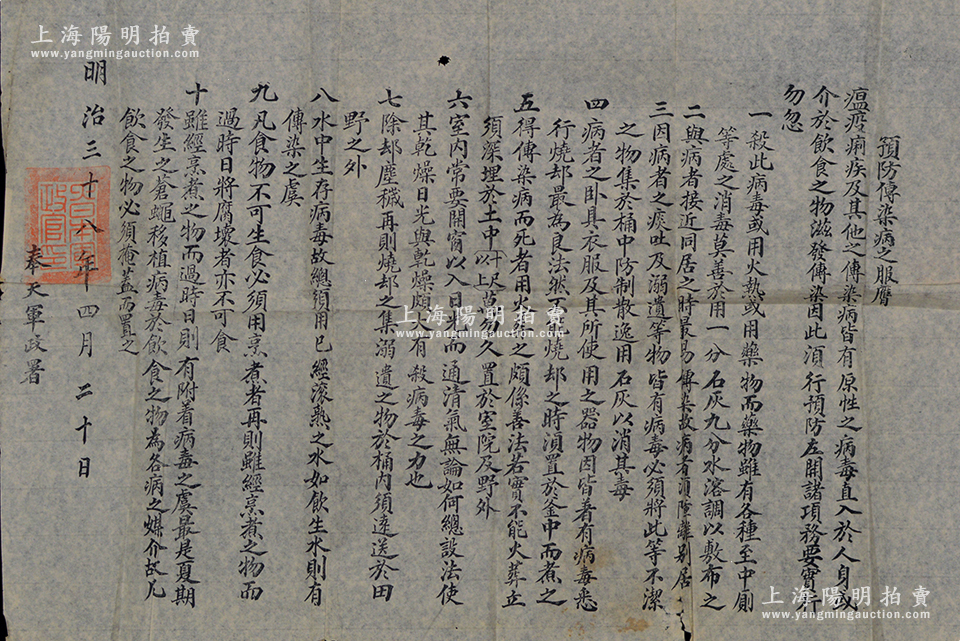 預防傳染病之服膺
瘟疫痢疾及其他之傳染病皆有原性之病毒直入於人身或
介於飲食之物滋發傳染因此須行預防左開諸項務要實行
勿忽
一殺此病毒或用火熱或用藥物而藥物雖有各種至中厠
等處之消毒莫善於用一分石灰九分水溶調以敷布之
二與病者接近同居之時最易傳染故病者須隔離別居
三因病者之痰吐及溺遺等物皆有病毒必須將此等不潔
之物集於桶中防制散逸用石灰以消其毒
四病者之卧具衣服及其所使用之器物因皆著有病毒悉
行燒却最為良法然不燒却之時須置於釜中而煮之
五得傳染病而死者用火葬之頗係善法若實不能火葬立
須深埋於土中以十尺勿久置於室院及野外
六室内常要開窗以入日光而通清氣無論如何總設法使
其乾燥日光與乾燥頗有殺病毒之力也
七除却塵穢再則燒却之集溺遺之物於桶内須遠送於田
野之外
八水中生存病毒故總須用已經滚熱之水如飲生水則有
傳染之虞
九凡食物不可生食必須用烹煮者再則雖經烹煮之物而
過時日將腐壞者亦不可食
十雖經烹煮之物而過時日則有附着病毒之虞最是夏期
發生之蒼蠅移植病毒於飲食之物為各病之媒介故凡
飲食之物必須掩蓋而置之
明治三十八年四月二十日
奉天軍政署
上海陽明拍賣
www.yangmingauction.com
上海陽明拍賣
www.yangmingauction.com
上海陽明拍賣
www.yangmingauction.com
上海陽明拍賣
www.yangmingauction.com
上海陽明拍賣
www.yangmingauction.com